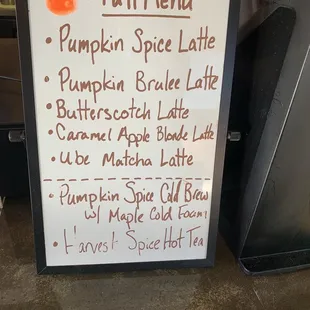 Fall Menu
• Pumpkin Spice Latte
• Pumpkin Brulee Latte
• Butterscotch Latte
• Caramel Apple Blonde Latte
• Ube Matcha Latte
• Pumpkin Spice Cold Brew
w/ Maple Cold Foam
• Harvest Spice Hot Tea